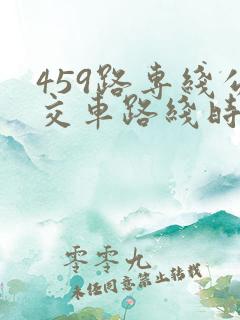 459路专綫公
交车路綫时
零零九
未经同意禁止转载